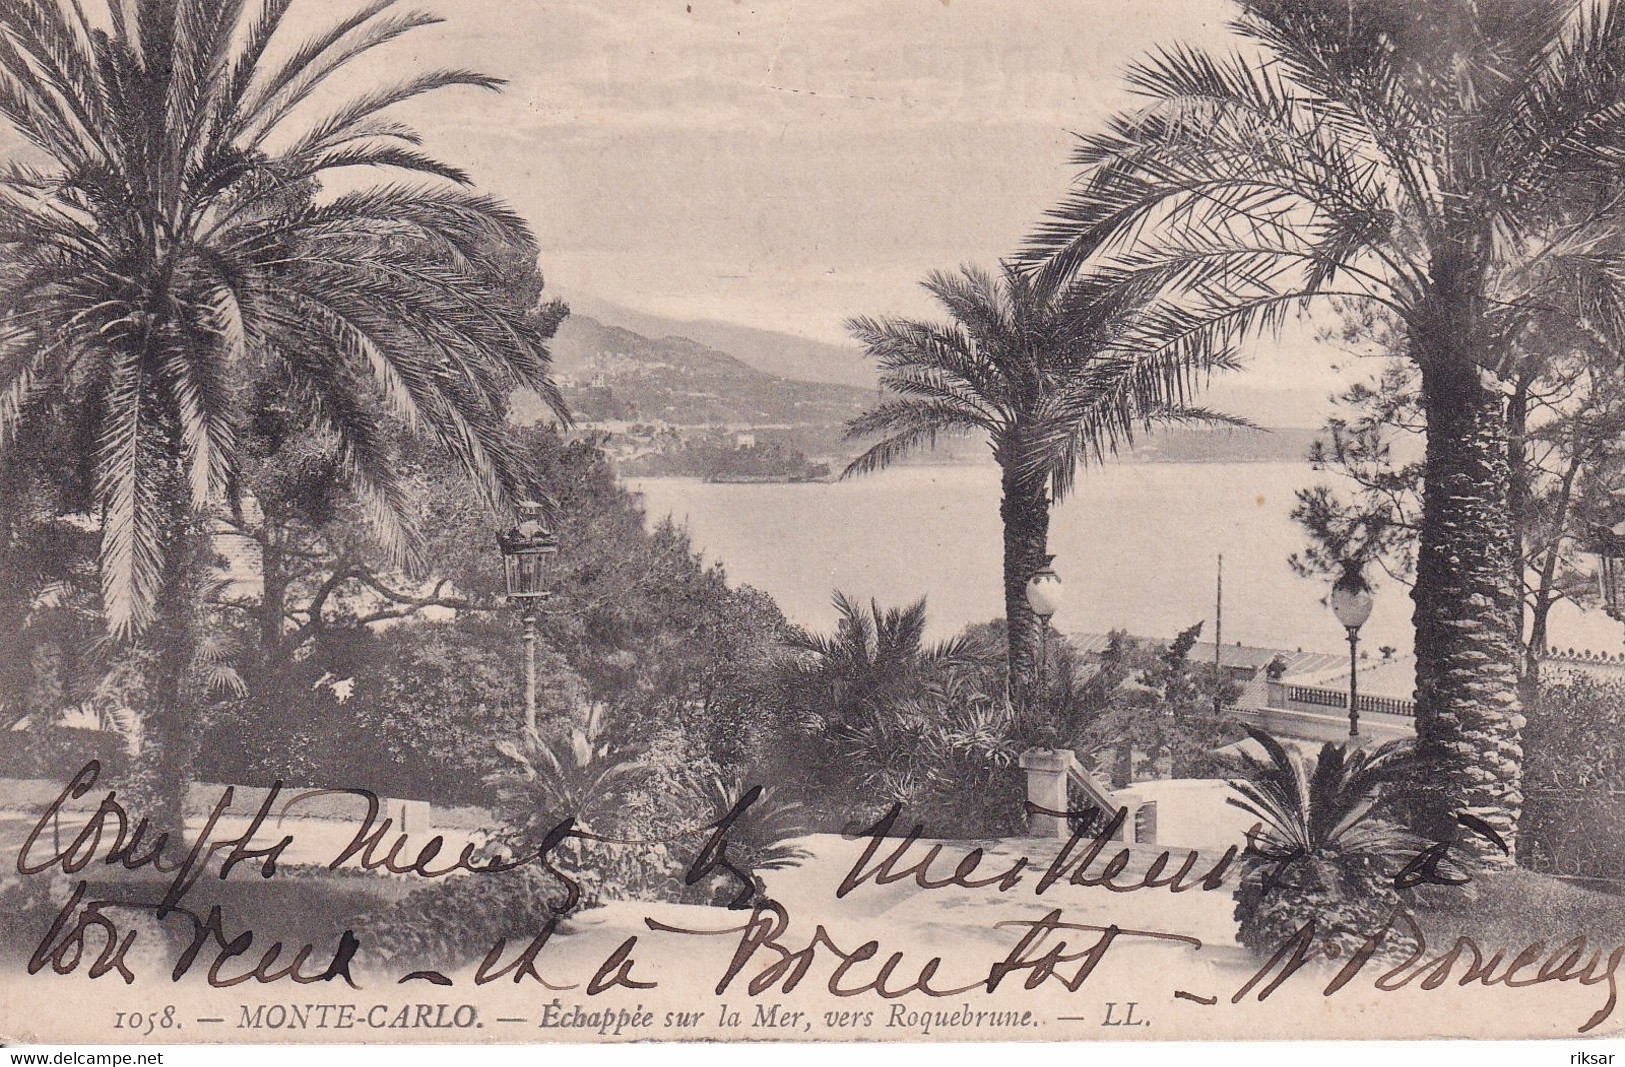 Compliments by meilleurs à
tous deux - et à Bientôt -
1058. — MONTE-CARLO. — Échappée sur la Mer, vers Roquebrune. — LL.
delcampe.net
riksar